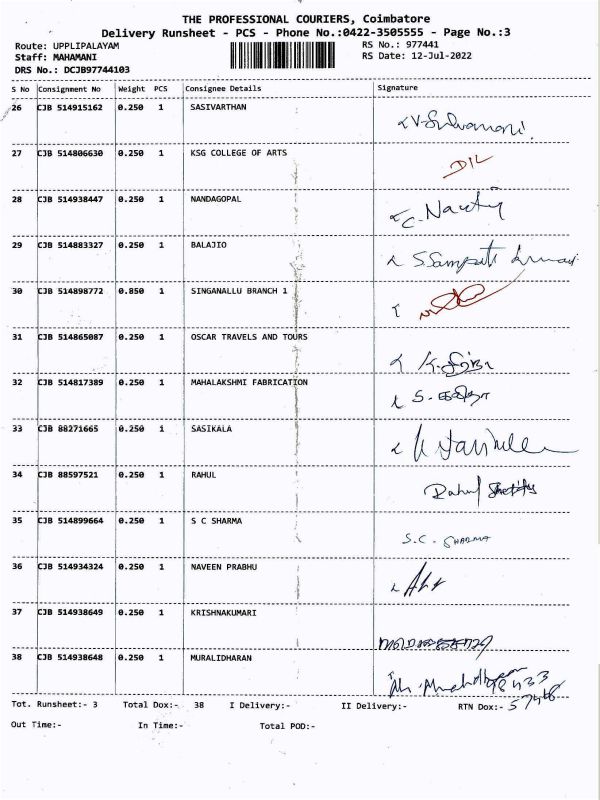 THE PROFESSIONAL COURIERS, Coimbatore
Delivery Runsheet - PCS - Phone No.:0422-3505555 - Page No.:3
Route: UPPLIPALAYAM RS No.: 977441
Staff: MAHAMANI RS Date: 12-Jul-2022
DRS No.: DCJB97744103
S No Consignment No Weight PCS Consignee Details Signature
26 CJB 514915162 0.250 1 SASIVARTHAN
27 CJB 514806630 0.250 1 KSG COLLEGE OF ARTS
28 CJB 514938447 0.250 1 NANDAGOPAL
29 CJB 514883327 0.250 1 BALAJIO
30 CJB 514898772 0.850 1 SINGANALLU BRANCH 1
31 CJB 514865087 0.250 1 OSCAR TRAVELS AND TOURS
32 CJB 514817389 0.250 1 MAHALAKSHMI FABRICATION
33 CJB 88271665 0.250 1 SASIKALA
34 CJB 88597521 0.250 1 RAHUL Rahul Shetty
35 CJB 514899664 0.250 1 S C SHARMA S.C. SHARMA
36 CJB 514934324 0.250 1 NAVEEN PRABHU
37 CJB 514938649 0.250 1 KRISHNAKUMARI
38 CJB 514938648 0.250 1 MURALIDHARAN
Tot. Runsheet:- 3 Total Dox:- 38 I Delivery:- II Delivery:- RTN Dox:-
Out Time:- In Time:- Total POD:-